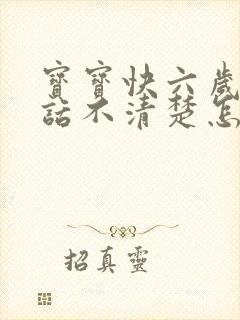 寶寶快六歲
話不清楚怎
招真靈